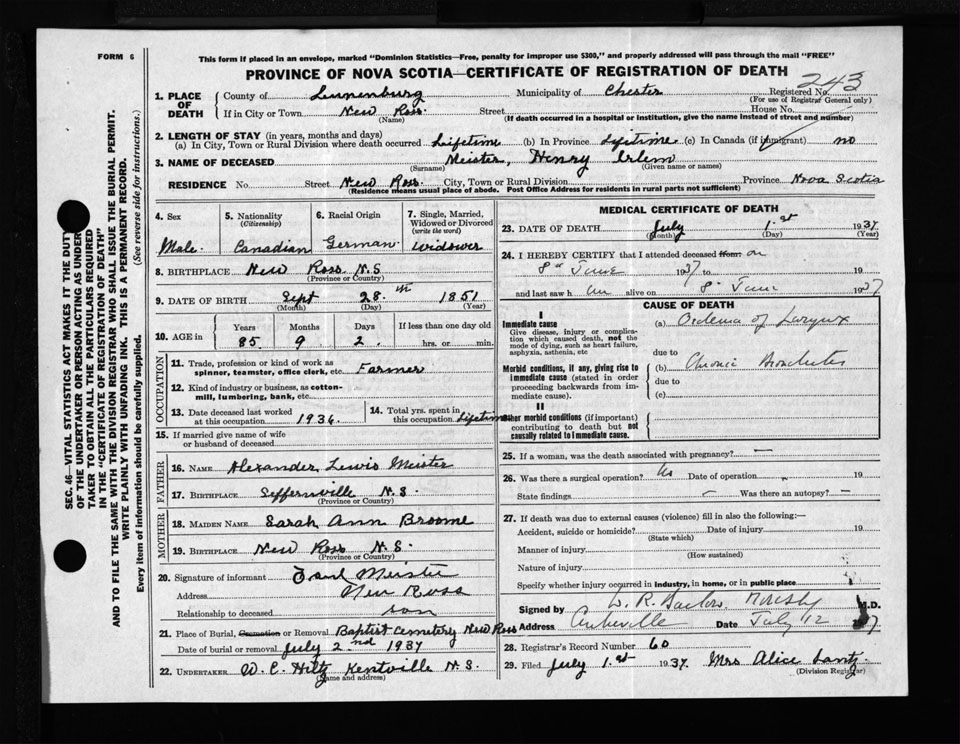 FORM 6
This form if placed in an envelope, marked "Dominion Statistics—Free, penalty for improper use $300," and properly addressed will pass through the mail "FREE"
PROVINCE OF NOVA SCOTIA—CERTIFICATE OF REGISTRATION OF DEATH
243
SEC. 46—VITAL STATISTICS ACT MAKES IT THE DUTY
OF THE UNDERTAKER OR PERSON ACTING AS UNDER-
TAKER TO OBTAIN ALL THE PARTICULARS REQUIRED
IN THE "CERTIFICATE OF REGISTRATION OF DEATH"
AND TO FILE THE SAME WITH THE DIVISION REGISTRAR WHO SHALL ISSUE THE BURIAL PERMIT.
WRITE PLAINLY WITH UNFADING INK. THIS IS A PERMANENT RECORD.
Every item of information should be carefully supplied. (See reverse side for instructions.)
1. PLACE OF DEATH
County of Lunenburg Municipality of Chester Registered No.
(For use of Registrar General only)
If in City or Town New Ross Street House No.
(Name) (If death occurred in a hospital or institution, give the name instead of street and number)
2. LENGTH OF STAY (in years, months and days)
(a) In City, Town or Rural Division where death occurred Lifetime (b) In Province Lifetime (c) In Canada (if immigrant) no
3. NAME OF DECEASED Meister, Henry
(Surname) (Given name or names)
RESIDENCE No. Street New Ross City, Town or Rural Division Province Nova Scotia
(Residence means usual place of abode. Post Office Address for residents in rural parts not sufficient)
4. Sex
Male
5. Nationality
(Citizenship)
Canadian
6. Racial Origin
German
7. Single, Married,
Widowed or Divorced
(write the word)
widower
8. BIRTHPLACE New Ross N.S
(Province or Country)
9. DATE OF BIRTH Sept 28th 1851
(Month) (Day) (Year)
10. AGE in
Years Months Days If less than one day old
85 9 2 hrs. or min.
OCCUPATION
11. Trade, profession or kind of work as
spinner, teamster, office clerk, etc. Farmer
12. Kind of industry or business, as cotton-
mill, lumbering, bank, etc.
13. Date deceased last worked
at this occupation 1936
14. Total yrs. spent in
this occupation Lifetime
15. If married give name of wife
or husband of deceased
FATHER
16. NAME Alexander Lewis Meister
17. BIRTHPLACE Seffernville N.S.
(Province or Country)
MOTHER
18. MAIDEN NAME Sarah Ann Broome
19. BIRTHPLACE New Ross N.S.
(Province or Country)
20. Signature of informant Meister
Address New Ross
Relationship to deceased son
21. Place of Burial, Cremation or Removal Baptist Cemetery New Ross
Date of burial or removal July 2nd 1937
22. UNDERTAKER W. C. Hiltz Kentville N.S.
(Name and address)
MEDICAL CERTIFICATE OF DEATH
23. DATE OF DEATH July 1st 1937
(Month) (Day) (Year)
24. I HEREBY CERTIFY that I attended deceased from: on
8th June 1937 to 19
and last saw him alive on 8th June 1937
CAUSE OF DEATH
I
Immediate cause
Give disease, injury or complica-
tion which caused death, not the
mode of dying, such as heart failure,
asphyxia, asthenia, etc
(a) Oedema of Larynx
due to
Morbid conditions, if any, giving rise to
immediate cause (stated in order
proceeding backwards from im-
mediate cause).
(b) Chronic Bronchitis
due to
(c)
II
Other morbid conditions (if important)
contributing to death but not
causally related to immediate cause.
25. If a woman, was the death associated with pregnancy? —
26. Was there a surgical operation? No Date of operation 19
State findings — Was there an autopsy? —
27. If death was due to external causes (violence) fill in also the following:—
Accident, suicide or homicide? Date of injury 19
(State which)
Manner of injury
(How sustained)
Nature of injury
Specify whether injury occurred in industry, in home, or in public place
Signed by M.D.
Address Date July 12 37
28. Registrar's Record Number 60
29. Filed July 1st 1937. Mrs Alice Lantz
(Division Registrar)